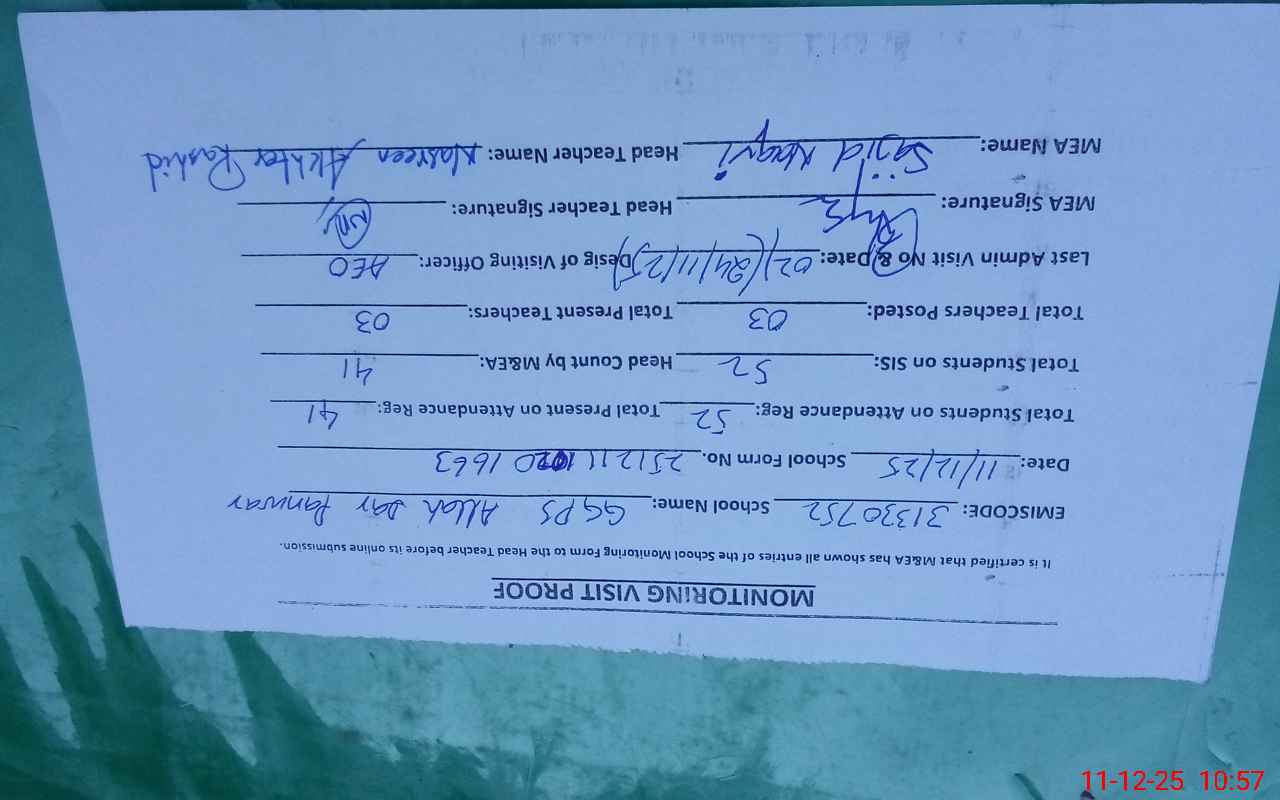 MONITORING VISIT PROOF
It is certified that M&EA has shown all entries of the School Monitoring Form to the Head Teacher before its online submission.
EMISCODE: 31330752 School Name: GGPS Allah Dar Panwar
Date: 11/12/25 School Form No. 251211 1020 1663
Total Students on Attendance Reg: 52 Total Present on Attendance Reg: 41
Total Students on SIS: 52 Head Count by M&EA: 41
Total Teachers Posted: 03 Total Present Teachers: 03
Last Admin Visit No & Date: 02/(24/11/25) Desig of Visiting Officer: AEO
MEA Signature: Head Teacher Signature:
MEA Name: Sajid Naqvi Head Teacher Name: Nasreen Akhter Rashid
11-12-25 10:57